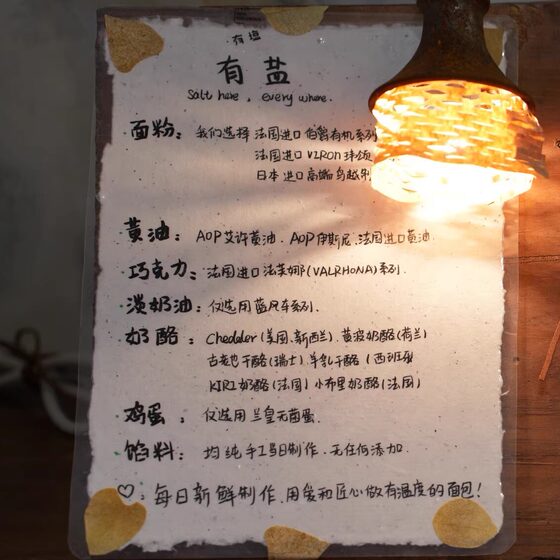 有盐
有盐
Salt here, every where.
面粉: 我们选择 法国进口 伯爵有机系列
法国进口 VIRON
日本 进口高端鸟越
黄油: AOP 艾许黄油、AOP伊斯尼、法国进口黄油.
巧克力: 法国进口 法芙娜(VALRHONA)系列.
淡奶油: 仅选用 蓝风车系列.
奶酪: Cheddar(美国、新西兰)、黄波奶酪(荷兰)
古老也干酪(瑞士)、羊乳干酪(西班牙)
KIRI奶酪(法国)小布里奶酪(法国)
鸡蛋: 仅选用 兰皇无菌蛋.
馅料: 均纯手工当日制作、无任何添加.
♡: 每日新鲜制作、用爱和匠心做有温度的面包!